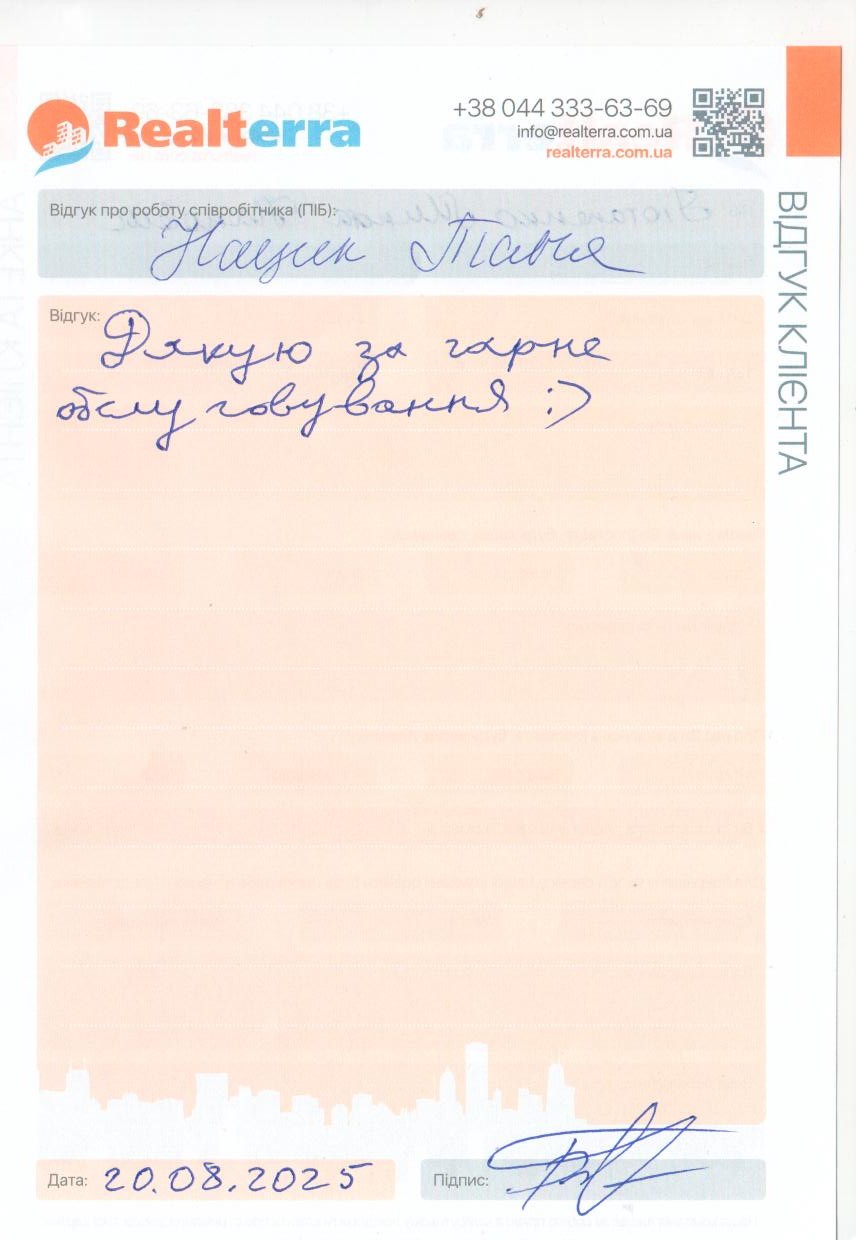 Realterra
+38 044 333-63-69
info@realterra.com.ua
realterra.com.ua
ВІДГУК КЛІЄНТА
Відгук про роботу співробітника (ПІБ):
Нащик
Відгук:
Дякую за гарне
обслуговування :)
Дата: 20.08.2025
Підпис: